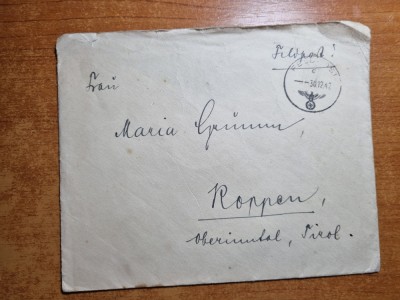 Feldpost!
Frau
Maria Grümm,
Roppen,
Oberinntal, Tirol.